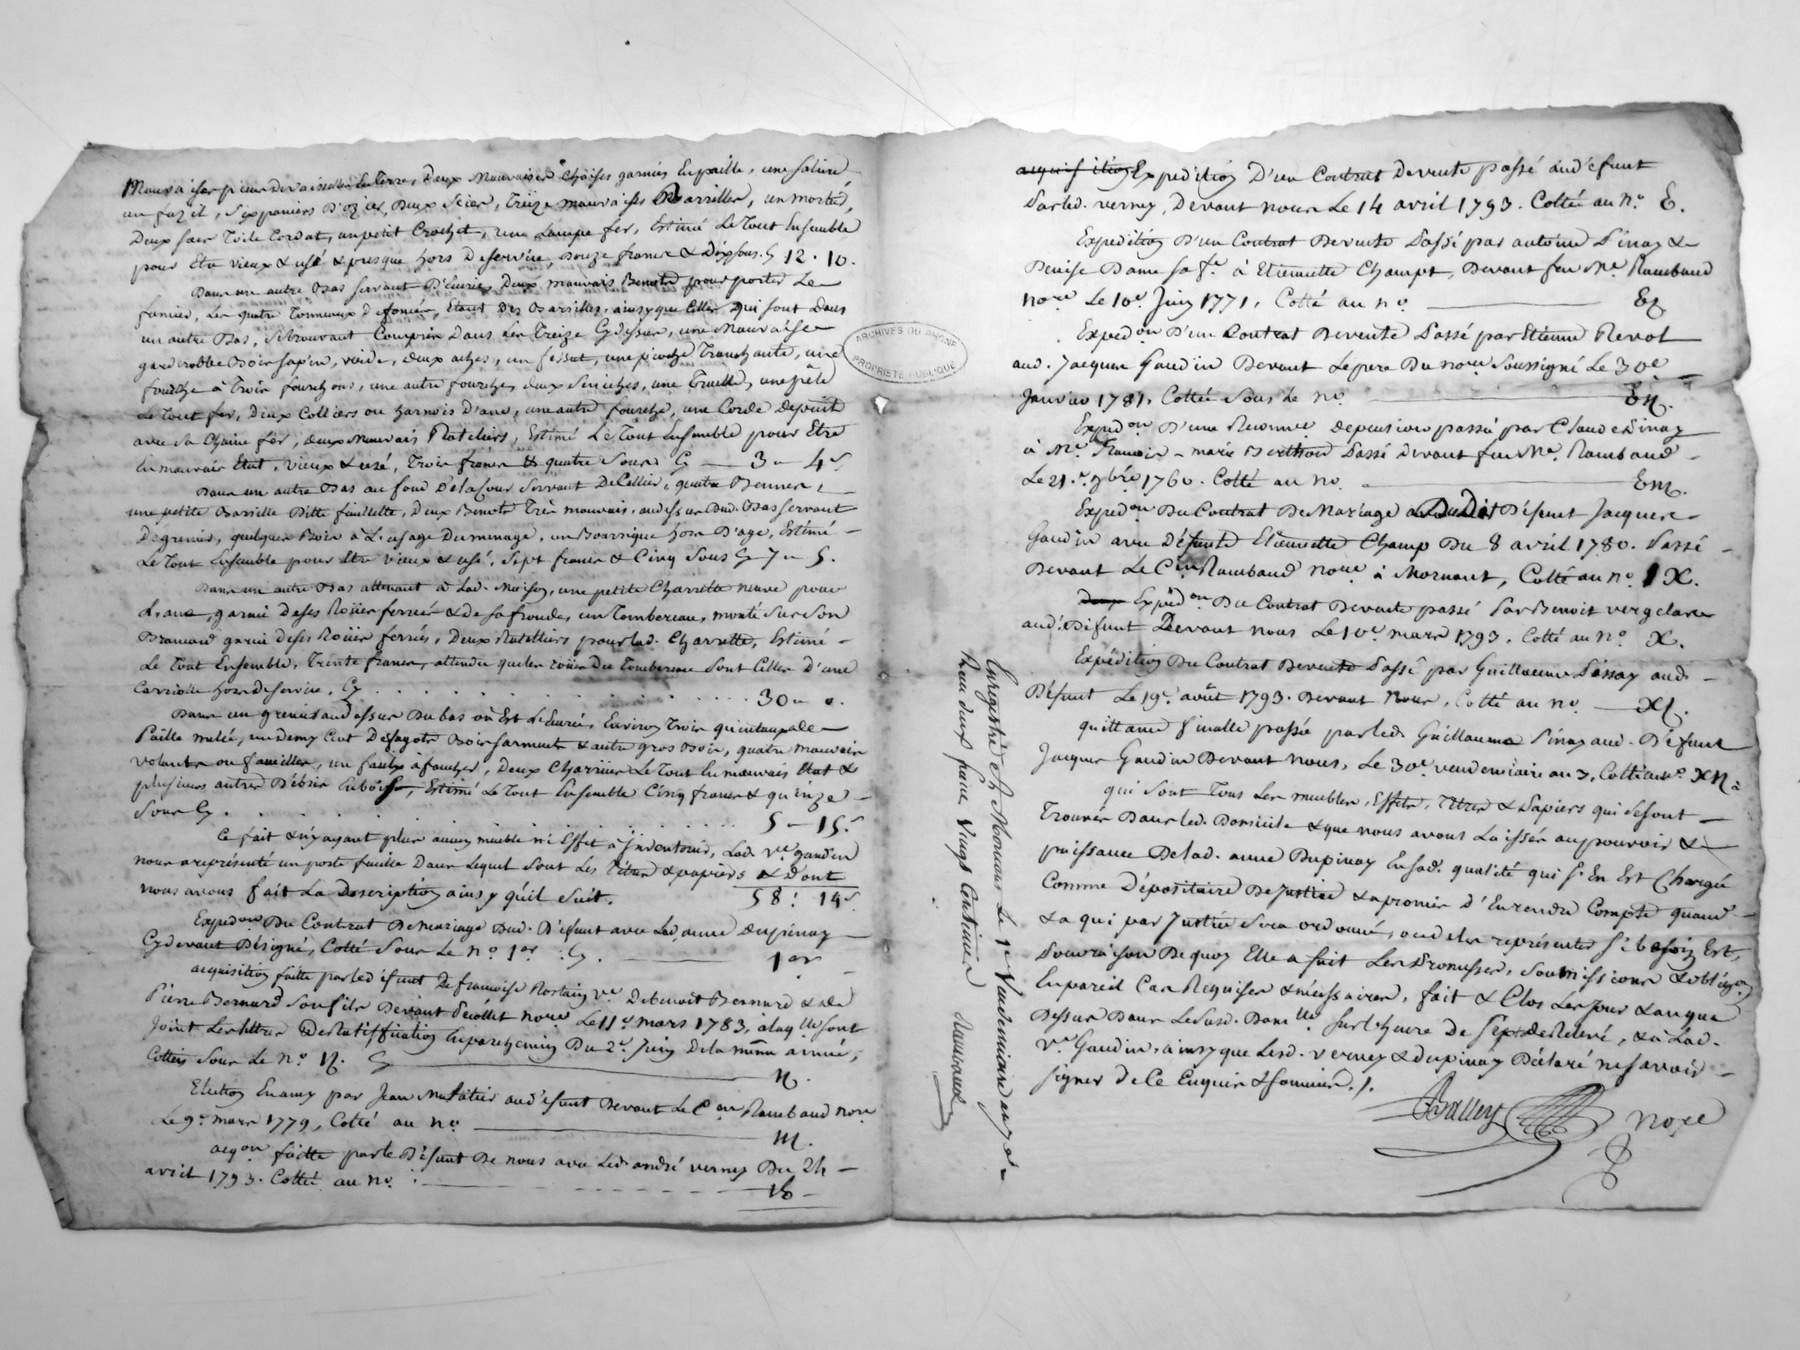 Mauvaises pieces de vaisselle en terre, deux mauvaises chaises garnies en paille, une saliere
un fuzil, six paniers d'ozier, deux scies, treize mauvaises Barrilles, un mortié,
deux sacs toile cordat, un petit crochet, une Lampe fer, Estimé Le Tout Ensemble
pour Etre vieux & usé & presque hors de service, Douze francs & dix sous. Cy 12 . 10.
Dans un autre Bas servant d'Ecurie, deux mauvais Benots pour porter Le
fumier, Les quatre Tonneaux d fonsés, Etant des Barrilles, ainsy que Celles qui sont dans
un autre Bas, se trouvant Comprise dans Les treize Cy dessus, une mauvaise
garderobbe Bois sapin, vuide, deux aches, un fessou, une pioche Tranchante, une
fourche à Trois fourchons, une autre fourche, deux seriches, une Truelle, une pèle
Le Tout fer, deux Colliers ou harnois d'ane, une autre fourche, une Corde de puit
avec sa Chaine fer, deux mauvais Rateliers, Estimé Le Tout Ensemble pour Etre
En mauvais Etat, vieux & usé, Trois francs & quatre Sous Cy — 3 " 4 s
Dans un autre Bas au fond de la Cour servant de Cellier, quatre Bennes,
une petite Barrille ditte feuillette, deux Benots Très mauvais, au dessus dud. Bas servant
de grenier, quelques Bois à L'usage du ménage, un Bourrique hors d'age, Estimé
Le Tout Ensemble pour Etre vieux & usé, Sept francs & Cinq Sous Cy 7 " 5.
Dans un autre Bas attenant à Lad. Maison, une petite Charrette neuve pour
L'ane, garnie de ses Roües ferrées & de sa fronde, un Tombereau, monté sur son
Brancard garni de ses Roües ferrées, deux Ratelliers pour lad. Charrette, Estimé
Le Tout Ensemble, Trente francs, attendu que les roües du Tombereau sont Celles d'une
Carriolle hors de service. Cy . . . . . . 30 " ".
Dans un grenier au dessus du bas où Est L'Ecurie, Environ Trois quintaux de
Paille melée, un demy Cent de fagots Bois sarments & autre gros Bois, quatre mauvais
volants ou faucilles, un faulx a faucher, deux Charriers Le Tout En mauvais Etat &
plusieurs autres Débris En bois, Estimé Le Tout Ensemble Cinq francs & quinze
Sous Cy . . . . . . 5 " 15 s
Ce fait & n'y ayant plus aucun meuble ni Effet à Inventorier, Lad. ve. gaudin
nous a représenté un porte feuille dans Lequel sont Les Titres & papiers & dont
nous avons fait La description ainsy qu'il suit. 58 : 14 s
Exped.on du Contrat de mariage dud. défunt avec Lad. anne dupinay
Cy devant désigné, Cotté Sous Le n.o 1er . Cy. — 1er
acquisition faitte par led défunt de françoise Rostaing ve. de benoit Bernard & de
Pierre Bernard son fils devant Pécollet nore Le 11e mars 1783, à laq.lle sont
Joint Les Lettres de Ratiffication En parchemin du 2e. Juin de la même année,
Cottées Sous Le n.o 2. Cy — 2.
Election En amy par Jean au défunt devant Le C.en Rambaud nore
Le 9e. mars 1779, Cotté au no — 3.
acq.on faitte par le défunt de nous avec Led. andré verney du 24
avril 1793. Cotté au no. — 4
ARCHIVES DU RHÔNE
PROPRIÉTÉ PUBLIQUE
acquisition Expedition d'un Contrat de vente passé aud défunt
Par led. verney, devant nous Le 14 avril 1793. Cotté au n.o 5.
Expedition d'un Contrat de vente Passé par antoine Pinay &
Denise Dame sa fe. à Etiennette Champt, devant feu Me. Rambaud
nore Le 10e Juin 1771, Cotté au no — 6
Exped.on d'un Contrat de vente Passé par Etienne Revol
aud. Jacques Gaudin devant Le pere du nore Soussigné Le 30e
Janvier 1781. Cotté Sous Le no. — 7.
Exped.on d'une Reconn.ce de pension passé par Claude Pinay
à Me. françois marie Berthon Passé devant feu Me. Rambaud
Le 21.e 9bre 1760. Cotté au no. — 8.
Exped.on du Contrat de Mariage dudit défunt Jacques
Gaudin avec défunte Etiennette Champ du 8 avril 1780. Passé
devant Le C.en Rambaud nore à Mornant, Cotté au n.o 9.
Expéd.on du Contrat de vente passé Par Benoit vergelas
aud. défunt devant nous Le 10e mars 1793, Cotté au n.o X.
Expédition du Contrat de vente Passé par Guillaume Pinay aud.
défunt Le 19e. août 1793. devant Nous, Cotté au no. — XI.
quittance finalle passée par led. Guillaume Pinay aud. défunt
Jacques Gaudin devant nous, Le 30e. vendemiaire an 3, Cottée au n.o XII.
qui sont Tous Les meubles, Effets, Titres & Papiers qui se sont
Trouvés dans led. domicile & que nous avons Laissés au pouvoir &
puissance de lad. anne Dupinay En sad. qualité qui s'En Est Chargée
Comme dépositaire de Justice & a promis d'En rendre Compte quand
& a qui par Justice sera ordonné, ou de les représenter Si besoin Est,
Pour raison de quoy Elle a fait Les Promesses, Soumissions & oblig.ons
En pareil Cas Requises & nécessaires, fait & Clos Les Jour & an que
dessus dans Le Susd. Domi.lle Sur L'heure de sept de Relevé, & a Lad.
ve. Gaudin, ainsy que Lesd. verney & dupinay déclaré ne savoir
signer de Ce Enquis & sommés ./.
Balley nore
Enregistré A Mornant Le 1er Vendemiaire an 3e
Reçu deux francs Vingt Centimes
Rambaud